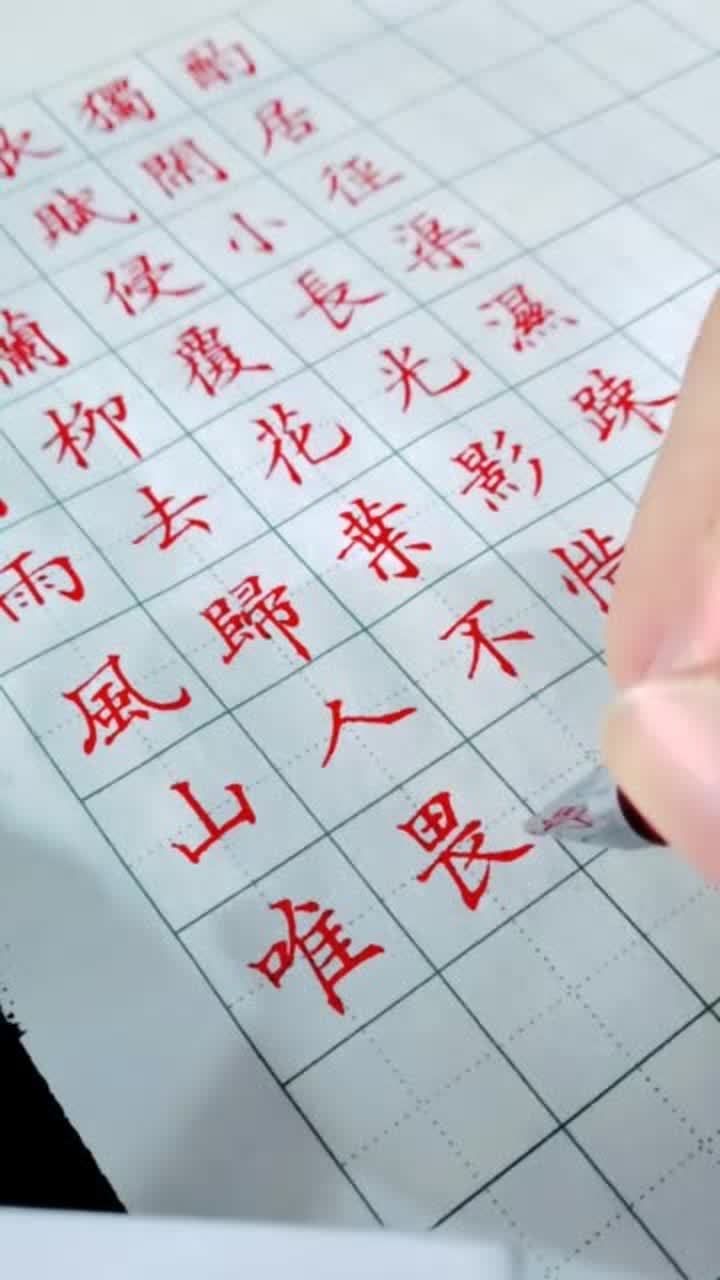 獨酌
賦閑居
蘭侵小徑
柳覆長渠
雨去花光濕
風歸葉影踈
山人不惜
唯畏